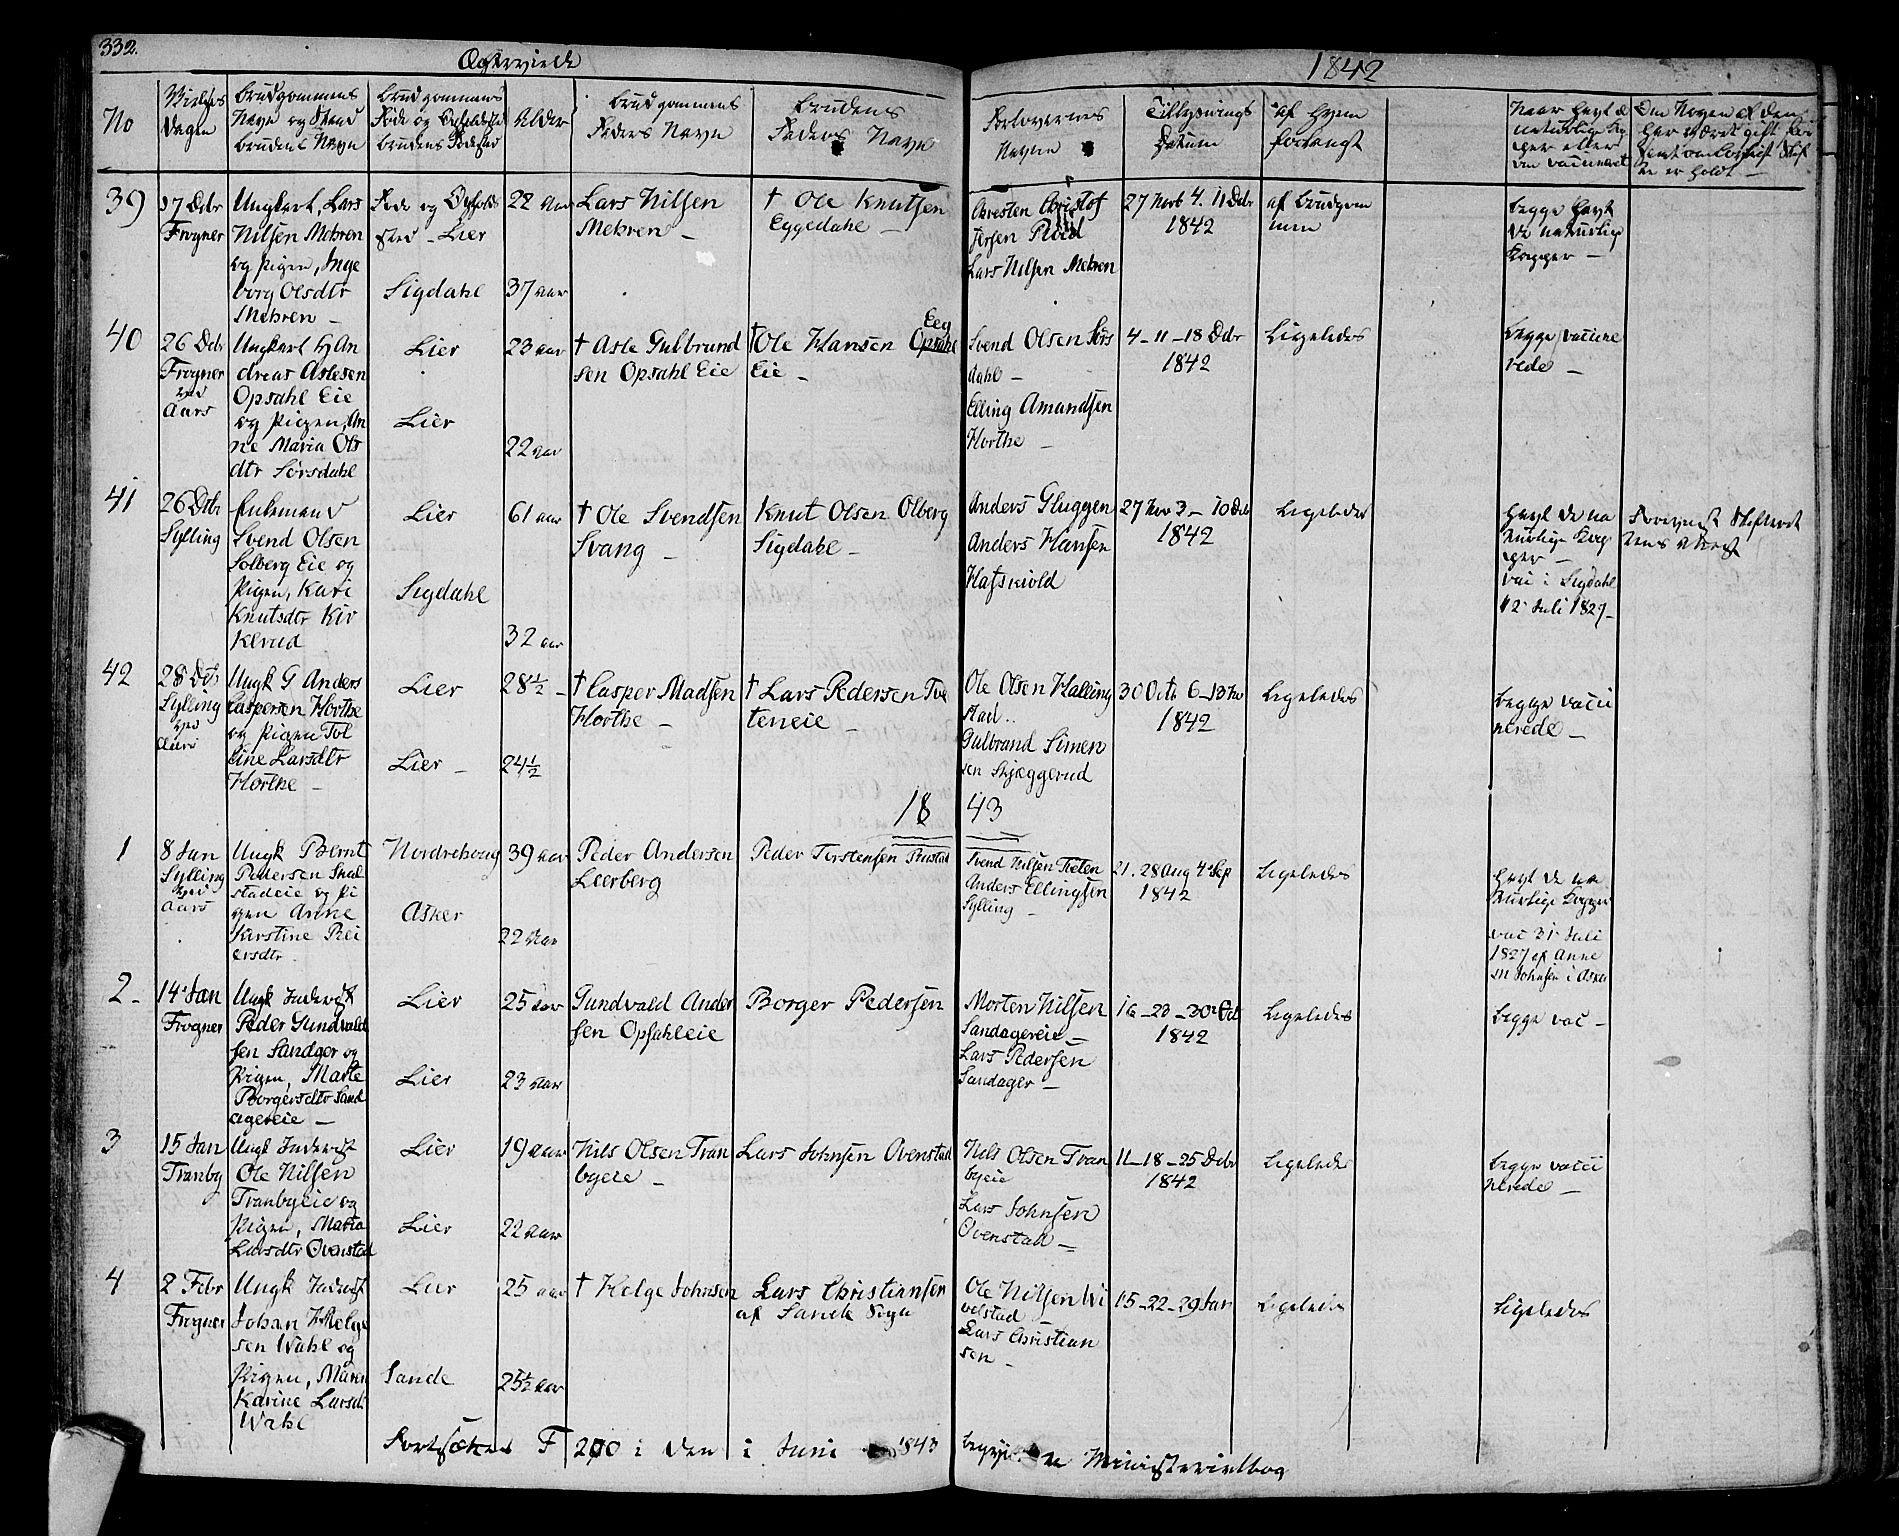 332.
Ægteviede
1842
No
Vielses
Dagen
Brudgommens
Navn og Stand
Brudens Navn
Brudgommens
Føde og Opholdsted
Brudens Fødested
Alder
Brudgommens
Faders Navn
Brudens
Faders Navn
Forlovernes
Navne
Tillysnings
Datum
af Hvem
forlangt
Naar havt de
naturlige Kop
per eller
om vaccineret
Om Nogen af dem
har været gift før
39
27 Dcbr
Frogner
Ungkarl, Lars
Nilsen Mehren
og Pigen, Inge
borg Olsdtr
Mehren –
Føde og Opholds
sted – Lier
Sigdahl
22 Aar
37 aar
Lars Nilsen
Mehren –
† Ole Knutsen
Eggedahl –
Christen Christof
fersen
Lars Nilsen Mehren
27 Novb 4. 11 Dcbr
1842
af Brudgom
men
Begge havt
de naturlige
Kopper –
40
26 Dcbr
Frogner
ved
Aars
Ungkarl G An
dreas Aslesen
Opsahl Eie
og Pigen, An
ne Maria Ols
dtr Sørsdahl
Lier
Lier
23 aar
22 aar
† Asle Gulbrand
sen Opsahl Eie
† Ole Hansen Opsahl
Eeg
Eie –
Svend Olsen Sørs
dahl –
Elling Amundsen
Horthe –
4 – 11 – 18 Dcbr
1842
Ligeledes
Begge vaccine
rede –
41
26 Dcbr
Sylling
Enkemand
Svend Olsen
Solberg Eie og
Pigen, Kari
Knutsdtr Kiv
klerud
Lier
Sigdahl
61 aar
32 aar
† Ole Svendsen
Svang –
Knut Olsen Olberg
Sigdahl –
Anders Gluggen
Anders Hansen
Hafskiold
27 Nov 3 – 10 Dcb
1842
Ligeledes
Havt de na
turlige Kop
per –
vac i Sigdahl
12 Juli 1827 –
Foreviist Skifteret
tens Attest
42
28 Dcb
Sylling
ved
Aars
Ungk G Anders
Caspersen Horthe
og Pigen Tol
line Larsdtr
Horthe –
Lier
Lier –
28½ –
24½
† Casper Madsen
Horthe –
† Lars Pedersen Tve
teneie –
Ole Olsen Halling
stad ..
Gulbrand Simen
sen Skjæggerud
30 Octb 6 – 13 Nov
1842
Ligeledes
Begge vacci
nerede –
1843
1
8 Jan
Sylling
ved
Aars
Ungk Bernt
Pedersen Skal
stadeie og Pi
gen Anne
Kirstine Pe
ersdtr
Nordrehoug
Asker
39 aar
22 Aar
Peder Andersen
Leerberg
Peder Torstensen Brustad
Svend Nilsen Tveten
Anders Ellingsen
Sylling –
21. 28 Aug 4 Sep
1842
Ligeledes
Havt de na
turlige Kopper
vac 31 Juli
1827 af Anne
M Johnsen i Asker
2 –
14 Jan
Frogner
Ungk Inderst
Peder Gundvald
sen Sandager og
Pigen, Marte
Borgersdtr Sand
agereie –
Lier
Lier
25 aar
23 aar
Gundvald Ander
sen Opsahleie
Borger Pedersen
Morten Nilsen
Sandagereie –
Lars Pedersen
Sandager –
16 – 23 – 30 Oct
1842
Ligeledes
Begge vac –
3
15 Jan
Tranby
Ungk Inderst
Ole Nilsen
Tranbyeie og
Pigen, Maria
Larsdtr Ovenstad
Lier
Lier
19 aar
22 aar
Nils Olsen Tran
byeie –
Lars Johnsen Ovenstad
Nils Olsen Tran
byeie
Lars Johnsen
Ovenstad –
11 – 18 – 25 Dcbr
1842
Ligeledes
Begge vacci
nerede –
4
2 Febr
Frogner
Ungk Inderst
Johan Helge
sen Wahl og
Pigen, Maren
Karine Larsdt
Wahl
Lier
Sande
25 aar
25½ aar
† Helge Johnsen
Lars Christiansen
af Sande Sogn
Ole Nilsen Wi
velstad
Lars Christian
sen –
15 – 22 – 29 Jan
Ligeledes
Ligeledes
Fortsættes F 200 i den i Juni 1843 begyn ne Ministerialbog